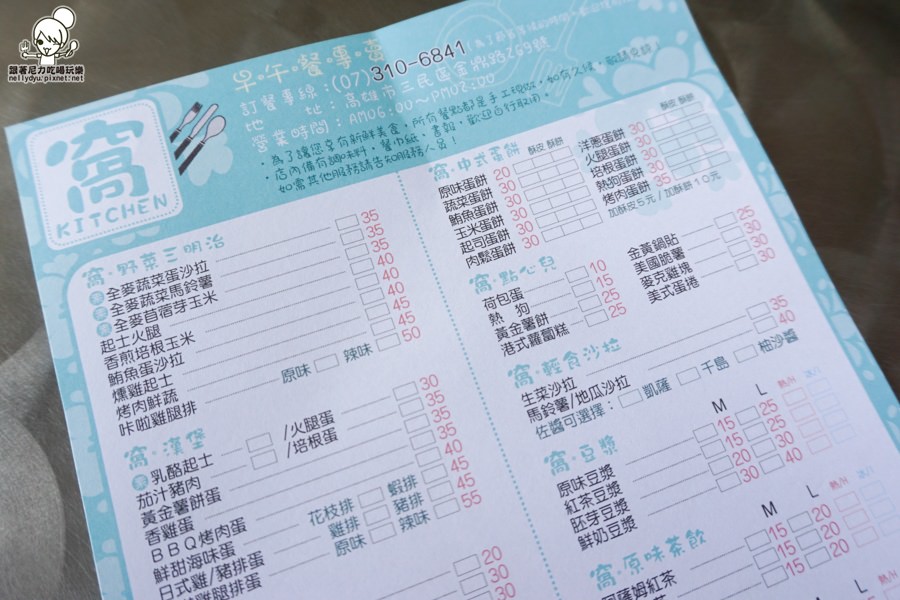 跟著尼力吃喝玩樂
nellydyu.pixnet.net
早午餐專賣
訂餐專線：(07)310-6841
地　址：高雄市三民區
營業時間：AM06:00～PM02:00
窩
KITCHEN
窩·野菜三明治
全麥蔬菜蛋沙拉 35
全麥蔬菜馬鈴薯 35
全麥苜蓿芽玉米 40
起士火腿 40
香煎培根玉米 40
鮪魚蛋沙拉 45
燻雞起士 45
烤肉鮮蔬 50
咔啦雞腿排 原味 辣味
窩·漢堡
乳酪起士 /火腿蛋 30
茄汁豬肉 /培根蛋 30
黃金薯餅蛋 35
香雞蛋 40
ＢＢＱ烤肉蛋 45
鮮甜海味蛋 花枝排 蝦排 45
日式雞/豬排蛋 雞排 豬排 55
雞腿排蛋 原味 辣味
20
30
窩·中式蛋餅 酥皮 酥餅
原味蛋餅 20
蔬菜蛋餅 30
鮪魚蛋餅 30
玉米蛋餅 30
起司蛋餅 30
肉鬆蛋餅 30
酥皮 酥餅
洋蔥蛋餅 30
火腿蛋餅 30
培根蛋餅 30
熱狗蛋餅 30
烤肉蛋餅 35
加酥皮5元/加酥餅10元
窩·點心兒
荷包蛋 10
熱　狗 15
黃金薯餅 25
港式蘿蔔糕 25
金黃鍋貼 25
美國脆薯 30
麥克雞塊 30
美式蛋捲 30
窩·輕食沙拉
生菜沙拉 35
馬鈴薯/地瓜沙拉 40
佐醬可選擇： 凱薩 千島 柚沙醬
窩·豆漿 M L 熱/H
原味豆漿 15 25
紅茶豆漿 15 25
胚芽豆漿 20 30
鮮奶豆漿 30 40
窩·原味茶飲 M L 熱/H
阿薩姆紅茶 15 20
15 20